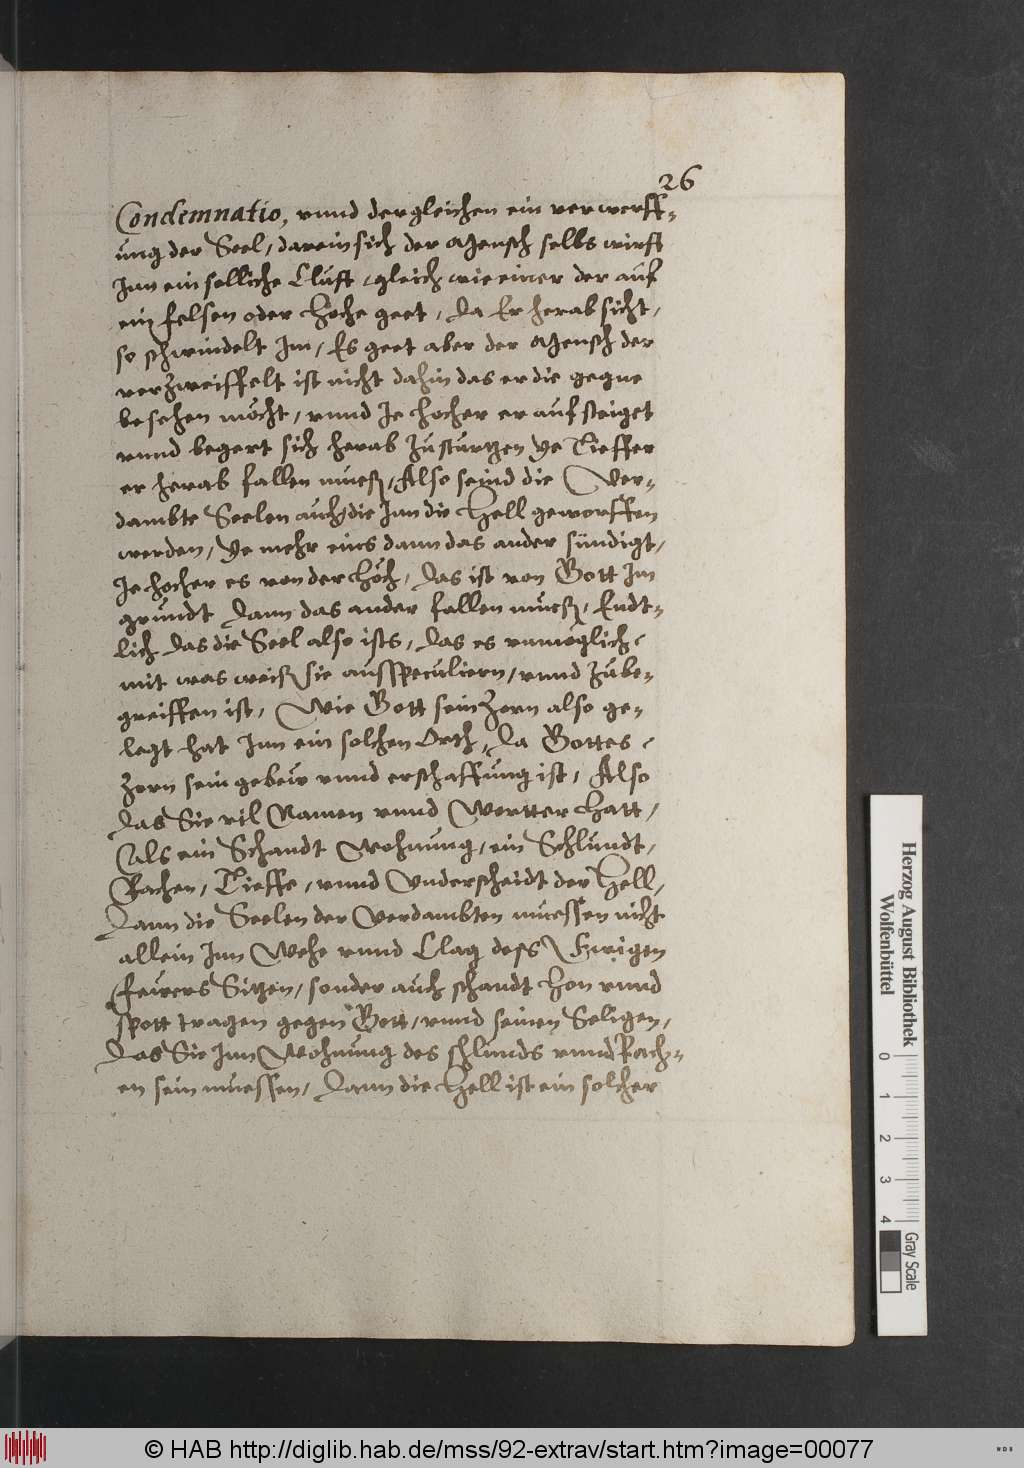 26
Condemnatio, vnnd dergleichen ein verwerff-
ung der Seel, darein sich der Mensch selbs wirft
Inn ein solliche Cluft, gleich wie einer der auf
ein felsen oder Höche geet, da Er herab sicht,
so schwindelt Im, Es geet aber der Mensch der
verzweiffelt ist nicht dahin das er die gegne
besehen möcht, vnnd Je hocher er auf steiget
vnnd begert sich herab zusturtzen ye Tieffer
er herab fallen mueß, Also seind die Ver-
dambte Seelen auch, die Inn die Hell geworffen
werden, Ye mehr eins dann das ander sündigt,
Je hocher es von der Höch, das ist von Gott Im
grundt dann das ander fallen mueß, Endt-
lich das die Seel also ists, das es vnmüglich
mit was weiß sie ausspeculiern, vnnd zube-
greiffen ist, Wie Gott sein Zorn also ge-
legt hat Inn ein solchen Orth, da Gottes
Zorn sein gebew vnnd erschaffung ist, Also
das Sie vil Namen vnnd Wertter hatt,
Als ein Schandt Wohnung, ein Schlundt,
Rachen, Tieffe, vnnd Vnderscheidt der Hell,
Dann die Seelen der Verdambten muessen nicht
allein Inn Wehe vnnd Clag dess Ewigen
Fewers Sitzen, sonder auch schandt Hon vnnd
spott tragen gegen Gott, vnnd seinen Seligen,
das Sie Inn Wohnung des schlunds vnnd Rach-
en sein muessen, Dann die Hell ist ein solcher
Herzog August Bibliothek
Wolfenbüttel
0 1 2 3 4
Gray Scale
© HAB http://diglib.hab.de/mss/92-extrav/start.htm?image=00077